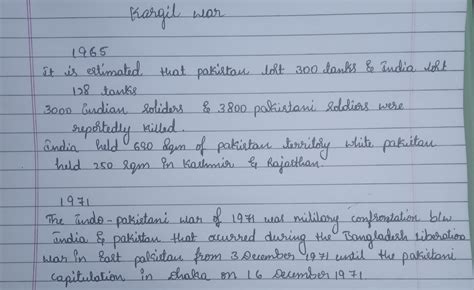 Kargil war
1965
It is estimated that pakistan lost 300 tanks & India lost
128 tanks
3000 Indian soliders & 3800 pakistani soldiors were
reportedly killed.
India held 690 sqm of pakistan territoy white pakistan
held 250 sqm in Kashmir & Rajasthan.
1971
The Indo-pakistani war of 1971 was military confrontation b/w
India & pakistan that ocurred during the Bangladesh liberation
war in East pakistan from 3 December 1971 until the pakistani
capitulation in dhaka on 16 December 1971